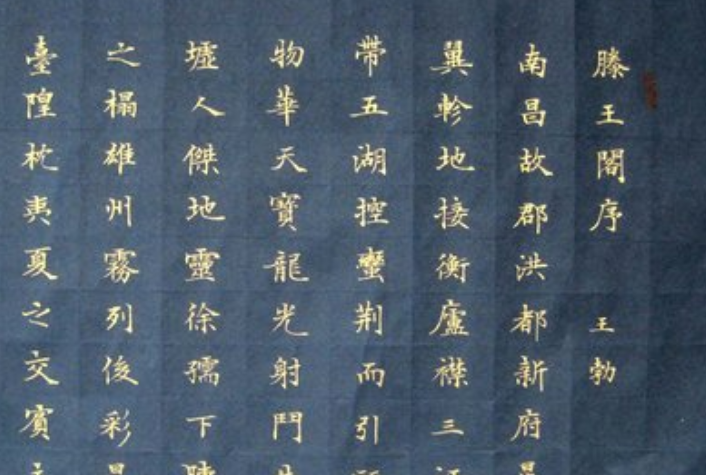 滕王閣序 王勃
南昌故郡洪都新府
翼軫地接衡廬襟三
帶五湖控蠻荊而引
物華天寶龍光射鬥
墟人傑地靈徐孺下
之榻雄州霧列俊彩
臺隍枕夷夏之交賓